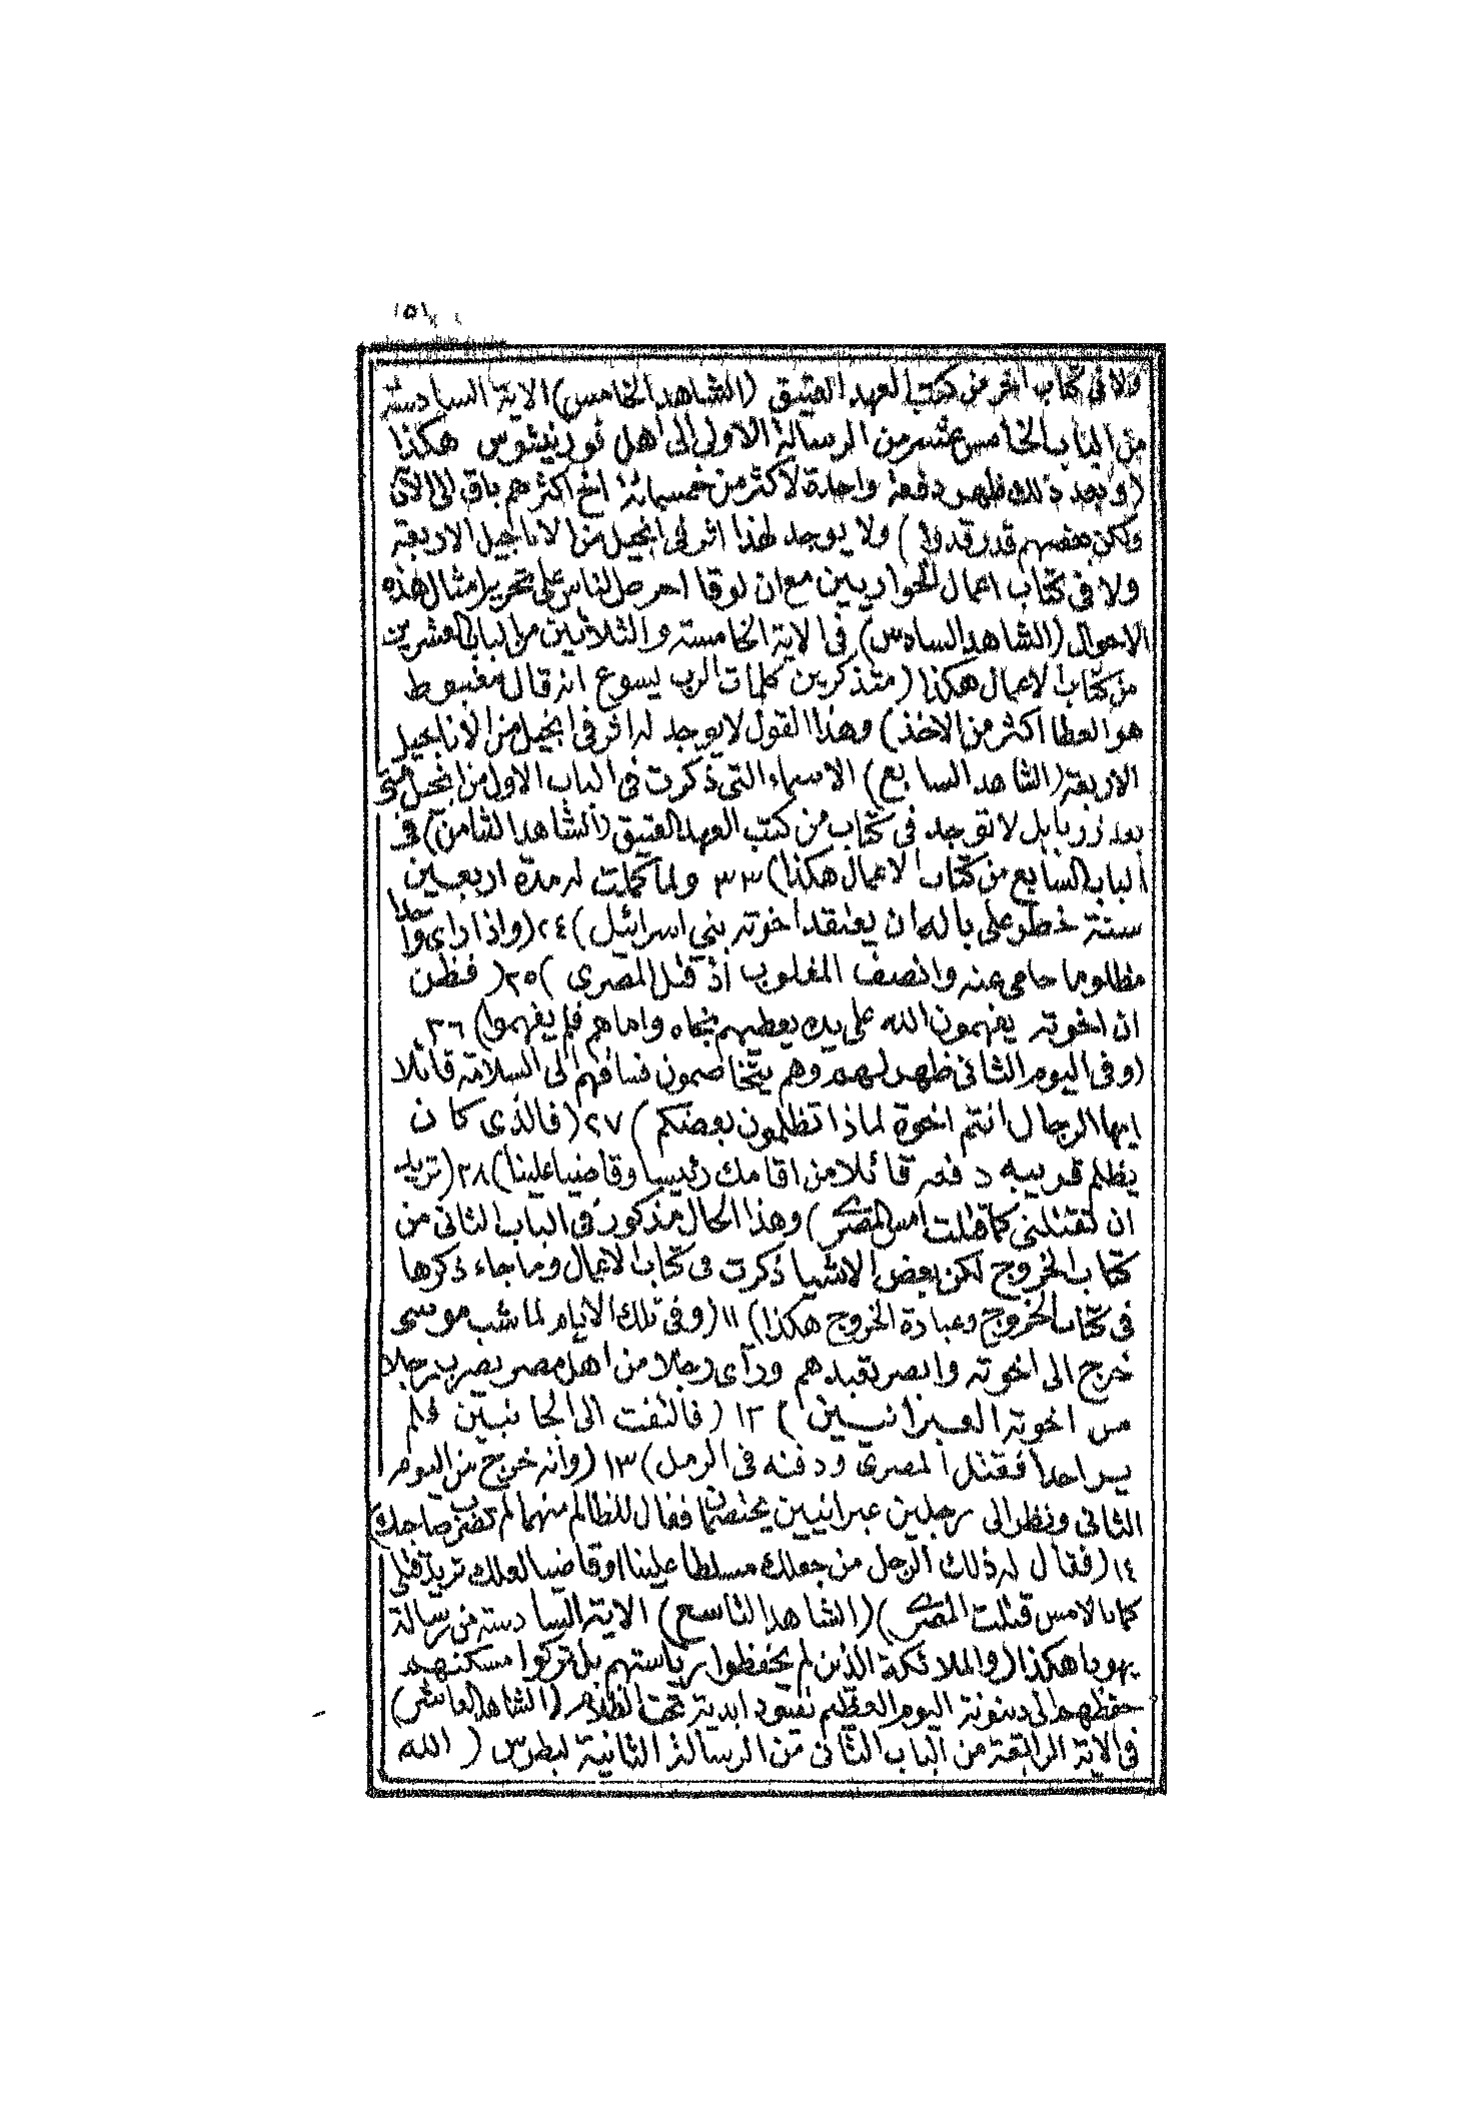 ١٥١
ولا فى كتاب اخر من كتب العهد العتيق (الشاهد الخامس) الاية السادسة
من الباب الخامس عشر من الرسالة الاولى الى اهل قورنيثوس هكذا
(وبعد ذلك ظهر دفعة واحدة لاكثر من خمسمائة اخ اكثرهم باق الى الآن
ولكن بعضهم قد رقدوا) ولا يوجد لهذا اثر فى انجيل من الاناجيل الاربعة
ولا فى كتاب اعمال الحواريين مع ان لوقا احرص الناس على تحرير امثال هذه
الاحوال (الشاهد السادس) فى الاية الخامسة والثلاثين من الباب العشرين
من كتاب الاعمال هكذا (متذكرين كلمات الرب يسوع انه قال مغبوط
هو العطا اكثر من الاخذ) وهذا القول لا يوجد له اثر فى انجيل من الاناجيل
الاربعة (الشاهد السابع) الاسماء التى ذكرت فى الباب الاول من انجيل متى
بعد زربابل لا توجد فى كتاب من كتب العهد العتيق (الشاهد الثامن) فى
الباب السابع من كتاب الاعمال هكذا) ٢٣ ولما كملت له مدة اربعين
سنة خطر على باله ان يعتقد اخوته بني اسرائيل) ٢٤ (واذا رأى واحدا
مظلوما حامى عنه وانصف المغلوب اذ قتل المصرى) ٢٥ (فظن
ان اخوته يفهمون الله على يده يعطيهم نجاه واما هم فلم يفهموا) ٢٦
(وفى اليوم الثانى ظهر لهم وهم يتخاصمون فساقهم الى السلامة قائلا
ايها الرجال انتم اخوة لماذا تظلمون بعضكم) ٢٧ (فالذى كان
يظلم قريبه دفعه قائلا من اقامك رئيسا وقاضيا علينا) ٢٨ (تريد
ان تقتلنى كما قتلت امس المصرى) وهذا الحال مذكور فى الباب الثانى من
كتاب الخروج لكن بعض الاشيا ذكرت فى كتاب الاعمال وما جاء ذكرها
فى كتاب الخروج وعبادة الخروج هكذا) ١١ (وفى تلك الايام لما شب موسى
خرج الى اخوته وابصر تعبدهم ورأى رجلا من اهل مصر يضرب رجلا
من اخوته العبرانيين) ١٢ (فالتفت الى الجانبين فلم
ير احدا فقتل المصرى ودفنه فى الرمل) ١٣ (وانه خرج من اليوم
الثانى ونظر الى رجلين عبرانيين يختصمان فقال للظالم منهما لم تضرب صاحبك)
١٤ (فقال له ذلك الرجل من جعلك مسلطا علينا او قاضيا لعلك تريد قتلى
كما بالامس قتلت المصرى) (الشاهد التاسع) الاية السادسة من رسالة
يهودا هكذا (والملائكة الذين لم يحفظوا رياستهم بل تركوا مسكنهم
حفظهم الى دينونة اليوم العظيم بقيود ابدية تحت الظلام (الشاهد العاشر)
فى الاية الرابعة من الباب الثانى من الرسالة الثانية لبطرس (الله